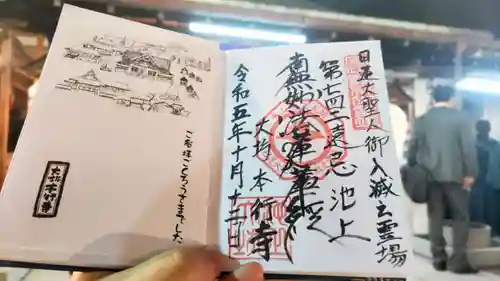 日蓮大聖人御入滅之霊場
第七四二遠忌池上
南無妙法蓮華経
大坊本行寺
令和五年十月十二日
ご苦労さまでした
大坊本行寺